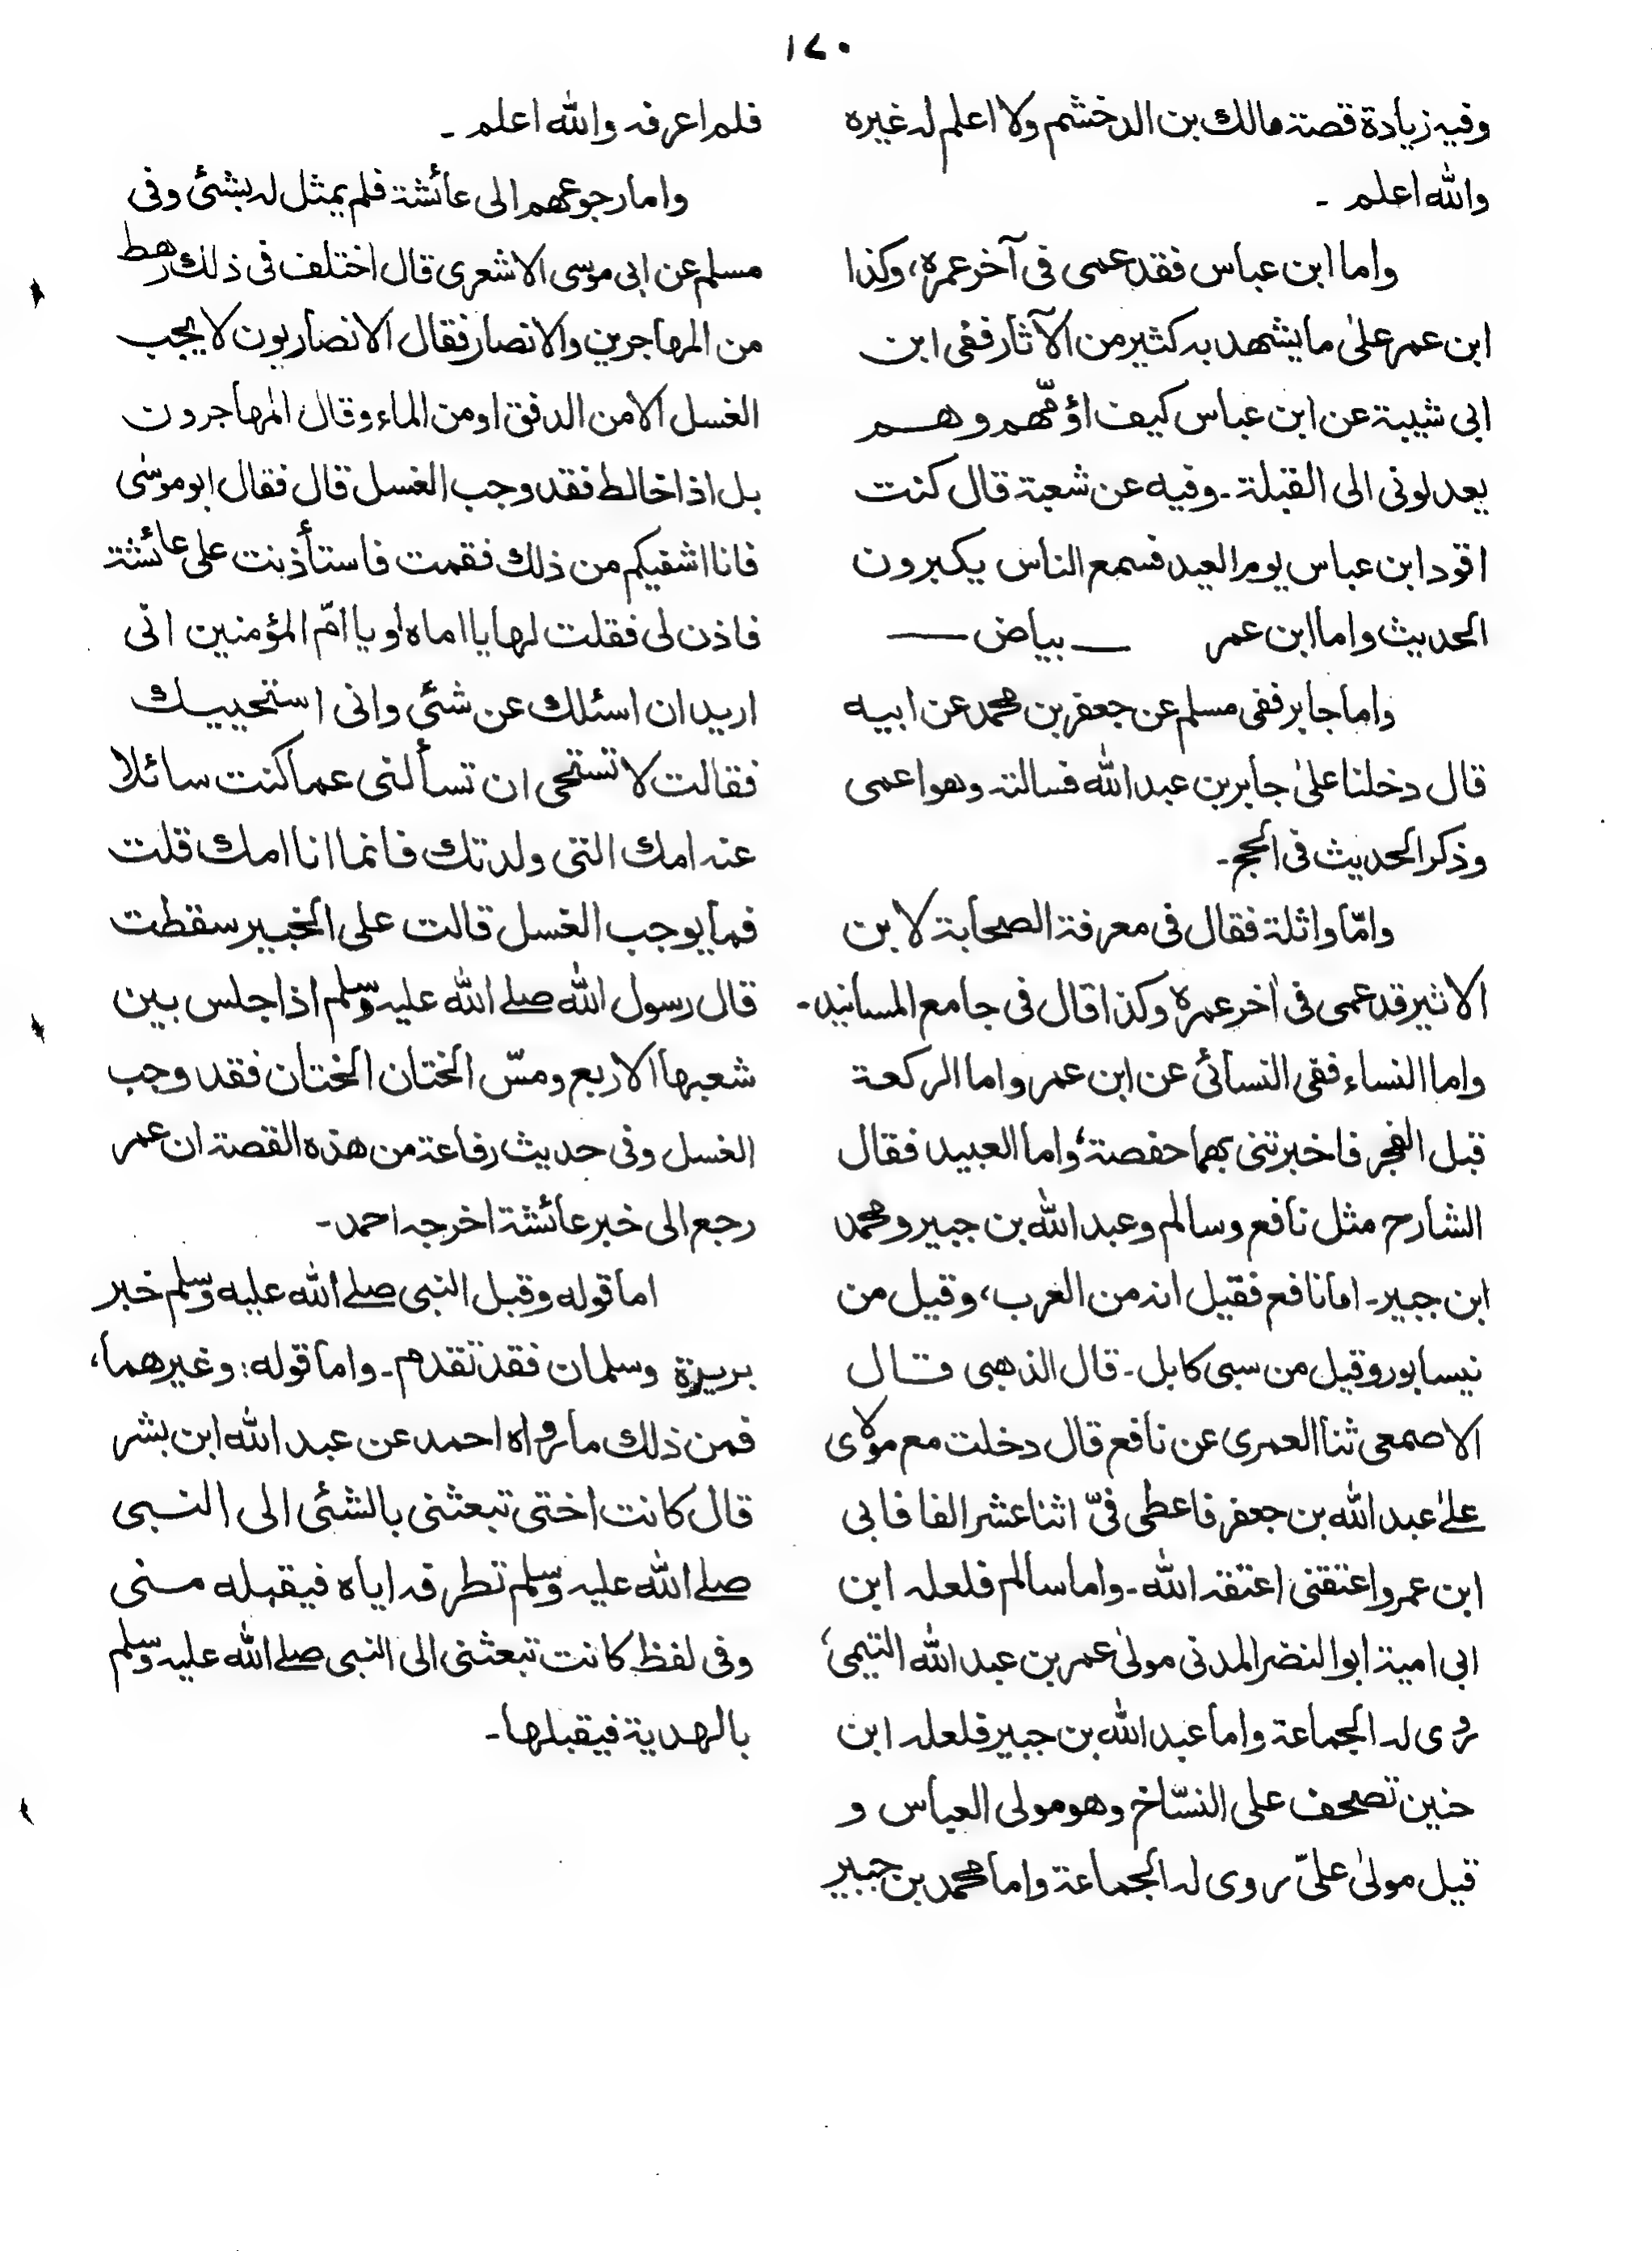 ١٧٠
وفيه زيادة قصة مالك بن الدخشم ولا اعلم له غيره
والله اعلم ـ
واما ابن عباس فقد عمى فى آخر عمره، وكذا
ابن عمر علىٰ ما يشهد به كثير من الآثار ففى ابن
ابى شيبة عن ابن عباس كيف اؤمّهم وهم
يعدلونى الى القبلة ـ وفيه عن شعبة قال كنت
اقود ابن عباس يوم العيد فسمع الناس يكبرون
الحديث واما ابن عمر —— بياض ——
واما جابر ففى مسلم عن جعفر بن محمد عن ابيه
قال دخلنا علىٰ جابر بن عبد الله فسالته وهو اعمى
وذكر الحديث فى الحج ـ
وامّا واثلة فقال فى معرفة الصحابة لابن
الاثير قد عمى فى اٰخر عمره وكذا قال فى جامع المسانيد ـ
واما النساء ففى النسائى عن ابن عمر واما الركعة
قبل الفجر فاخبرتنى بهما حفصة، واما العبيد فقال
الشارح مثل نافع وسالم وعبد الله بن جبير ومحمد
ابن جبير ـ اما نافع فقيل انه من العرب، وقيل من
نيسابور وقيل من سبى كابل ـ قال الذهبى قال
الاصمعى ثنا العمرى عن نافع قال دخلت مع مولاى
علےٰ عبد الله بن جعفر فاعطى فىّ اثنا عشر الفا فابى
ابن عمر واعتقنى اعتقه الله ـ واما سالم فلعله ابن
ابى امية ابو النضر المدنى مولىٰ عمر بن عبد الله التيمى،
روى له الجماعة واما عبد الله بن جبير فلعله ابن
حنين تصحف على النسّاخ وهو مولى العباس و
قيل مولىٰ علىّ روى له الجماعة واما محمد بن جبير
فلم اعرفه والله اعلم ـ
واما رجوعهم الى عائشة فلم يمثل له بشئ وفى
مسلم عن ابى موسى الاشعرى قال اختلف فى ذلك رهط
من المهاجرين والانصار فقال الانصاريون لا يجب
الغسل الا من الدفق او من الماء وقال المهاجرون
بل اذا خالط فقد وجب الغسل قال فقال ابو موسٰى
فانا اشفيكم من ذلك فقمت فاستأذنت على عائشة
فاذن لى فقلت لها يا اماه او يا امّ المؤمنين انى
اريد ان اسئلك عن شئى وانى استحييك
فقالت لا تستحى ان تسألنى عما كنت سائلا
عنه امك التى ولدتك فانما انا امك قلت
فما يوجب الغسل قالت على الخبير سقطت
قال رسول الله صلے الله عليه وسلم اذا جلس بين
شعبها الاربع ومسّ الختان الختان فقد وجب
الغسل وفى حديث رفاعة من هذه القصة ان عمر
رجع الى خبر عائشة اخرجه احمد ـ
اما قوله وقبل النبى صلے الله عليه وسلم خبر
بريرة وسلمان فقد تقدم ـ واما قوله: وغيرهما،
فمن ذلك ما رواه احمد عن عبد الله ابن بشر
قال كانت اختى تبعثنى بالشئى الى النبى
صلے الله عليه وسلم تطرفه اياه فيقبله منى
وفى لفظ كانت تبعثنى الى النبى صلے الله عليه وسلم
بالهدية فيقبلها ـ